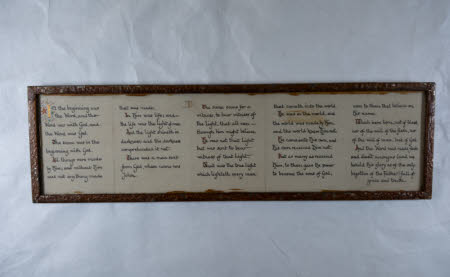 In the beginning was
the Word, and the
Word was with God, and
the Word was God.
The same was in the
beginning with God.
All things were made
by Him; and without Him
was not any thing made
that was made.
In Him was life; and
the life was the light of men.
And the light shineth in
darkness; and the darkness
comprehended it not.
There was a man sent
from God, whose name was
John.
The same came for a
witness, to bear witness of
the Light, that all men
through him might believe.
He was not that Light
but was sent to bear
witness of that Light.
That was the true Light
which lighteth every man
that cometh into the world.
He was in the world, and
the world was made by Him,
and the world knew Him not.
He came unto His own, and
His own received Him not.
But as many as received
Him, to them gave He power
to become the sons of God,
even to them that believe on
His name.
Which were born, not of blood
nor of the will of the flesh, nor
of the will of man, but of God.
And the Word was made flesh
and dwelt among us (and we
beheld His glory, the glory as of the only
begotten of the Father) full of
grace and truth.